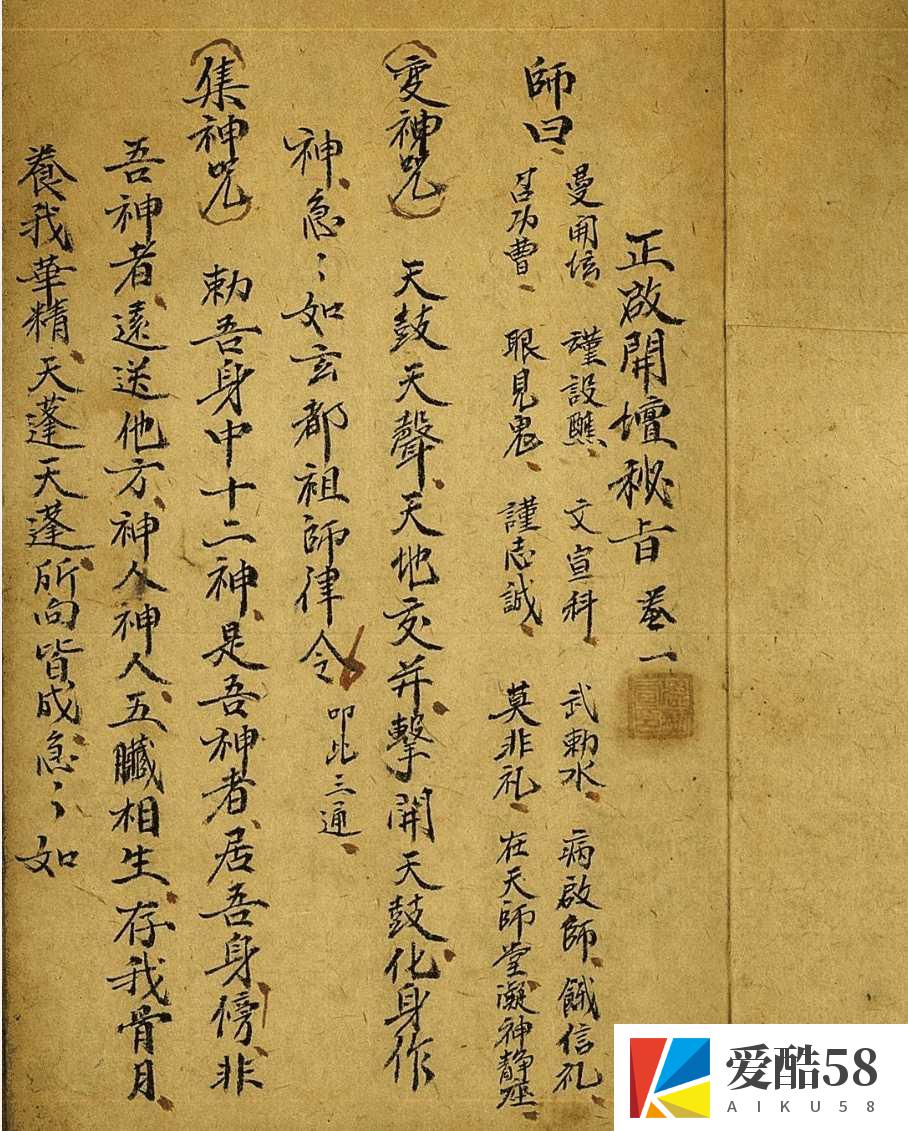 正啟開壇秘旨 卷一
師曰、
曼用信、謹設醮、文宣科、武勅水、病啟師、餓信礼、
甚功曹、眼見鬼、謹志誠、莫非礼、在天師堂凝神静座、
(变神咒) 天鼓天聲、天地交并擊開天鼓化身作
神、急〻如玄都祖師律令 叩此三通、
(集神咒) 勅吾身中十二神、是吾神者、居吾身傍、非
吾神者、遠送他方、神人神人、五臟相生、存我骨月、
養我華精、天蓬天蓬、所向皆成、急〻如
爱酷58
AIKU58